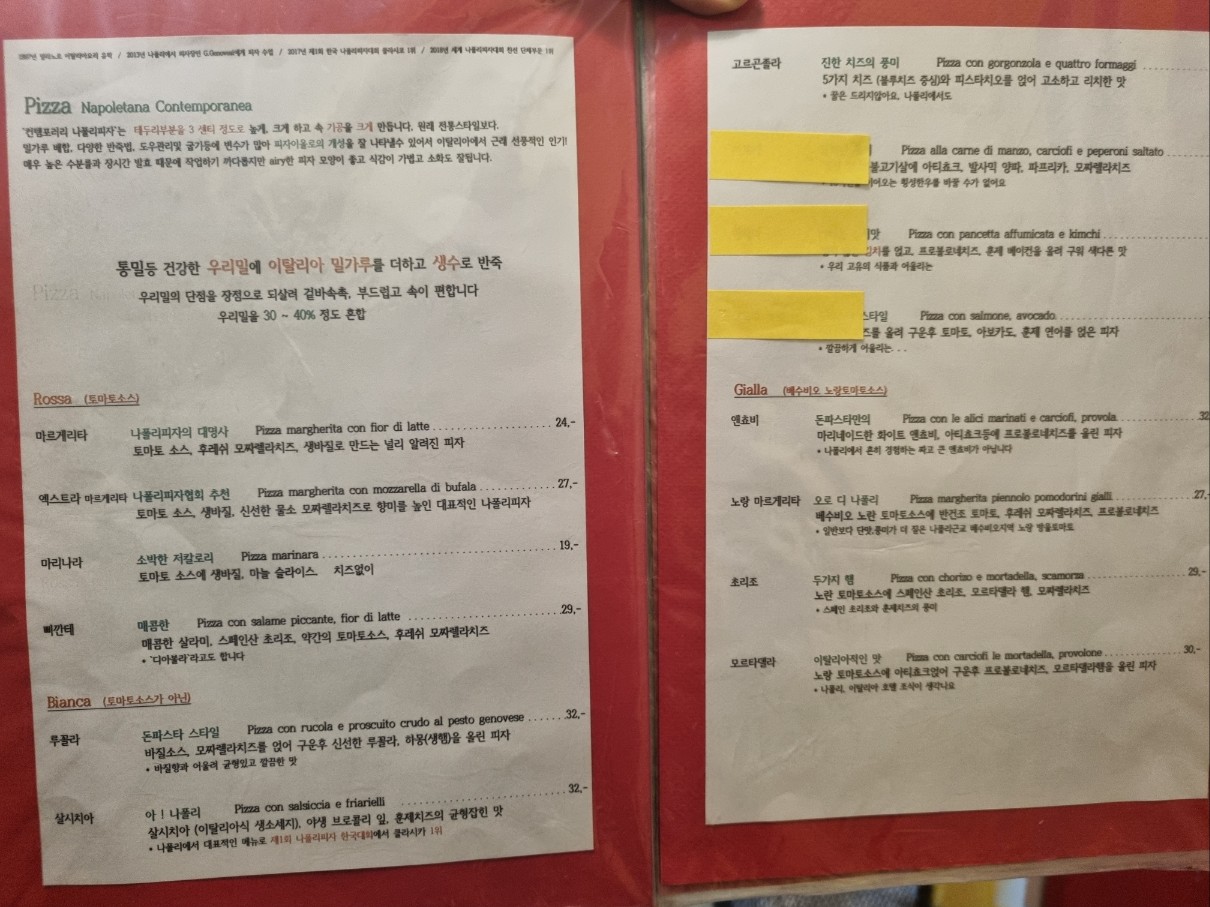 1997년 밀라노로 이탈리아요리 유학 / 2013년 나폴리에서 피자장인 G.Genovesi에게 피자 수업 / 2017년 제1회 한국 나폴리피자대회 클라시카 1위 / 2018년 세계 나폴리피자대회 한선 단체부문 1위
Pizza Napoletana Contemporanea
'컨템포러리 나폴리피자'는 테두리부분을 3 센티 정도로 높게, 크게 하고 속 기공을 크게 만듭니다. 원래 전통스타일보다.
밀가루 배합, 다양한 반죽법, 도우관리및 굽기등에 변수가 많아 피자이올로의 개성을 잘 나타낼수 있어서 이탈리아에서 근래 선풍적인 인기!
매우 높은 수분률과 장시간 발효 때문에 작업하기 까다롭지만 airy한 피자 모양이 좋고 식감이 가볍고 소화도 잘됩니다.
통밀등 건강한 우리밀에 이탈리아 밀가루를 더하고 생수로 반죽
우리밀의 단점을 장점으로 되살려 겉바속촉, 부드럽고 속이 편합니다
우리밀을 30 ~ 40% 정도 혼합
Rossa (토마토소스)
마르게리타 나폴리피자의 대명사 Pizza margherita con fior di latte 24,-
토마토 소스, 후레쉬 모짜렐라치즈, 생바질로 만드는 널리 알려진 피자
엑스트라 마르게리타 나폴리피자협회 추천 Pizza margherita con mozzarella di bufala 27,-
토마토 소스, 생바질, 신선한 물소 모짜렐라치즈로 향미를 높인 대표적인 나폴리피자
마리나라 소박한 저칼로리 Pizza marinara 19,-
토마토 소스에 생바질, 마늘 슬라이스. 치즈없이
삐깐테 매콤한 Pizza con salame piccante, fior di latte 29,-
매콤한 살라미, 스페인산 초리조, 약간의 토마토소스, 후레쉬 모짜렐라치즈
• '디아볼라'라고도 합니다
Bianca (토마토소스가 아닌)
루꼴라 돈파스타 스타일 Pizza con rucola e proscuito crudo al pesto genovese 32,-
바질소스, 모짜렐라치즈를 얹어 구운후 신선한 루꼴라, 하몽(생햄)을 올린 피자
• 바질향과 어울려 균형있고 깔끔한 맛
살시치아 아 ! 나폴리 Pizza con salsiccia e friarielli 32,-
살시치아 (이탈리아식 생소세지), 야생 브로콜리 잎, 훈제치즈의 균형잡힌 맛
• 나폴리에서 대표적인 메뉴로 제1회 나폴리피자 한국대회에서 클라시카 1위
고르곤졸라 진한 치즈의 풍미 Pizza con gorgonzola e quattro formaggi
5가지 치즈 (블루치즈 중심)와 피스타치오를 얹어 고소하고 리치한 맛
• 꿀은 드리지않아요, 나폴리에서도
Pizza alla carne di manzo, carciofi e peperoni saltato
불고기살에 아티쵸크, 발사믹 양파, 파프리카, 모짜렐라치즈
이어오는 횡성한우를 바꿀 수가 없어요
맛 Pizza con pancetta affumicata e kimchi
김치를 얹고, 프로볼로네치즈, 훈제 베이컨을 올려 구워 색다른 맛
• 우리 고유의 식품과 어울리는
스타일 Pizza con salmone, avocado
즈를 올려 구운후 토마토, 아보카도, 훈제 연어를 얹은 피자
• 깔끔하게 어울리는. . .
Gialla (베수비오 노랑토마토소스)
엔쵸비 돈파스타만의 Pizza con le alici marinati e carciofi, provola 32
마리네이드한 화이트 엔쵸비, 아티쵸크등에 프로볼로네치즈를 올린 피자
• 나폴리에서 흔히 경험하는 짜고 큰 엔쵸비가 아닙니다
노랑 마르게리타 오로 디 나폴리 Pizza margherita piennolo pomodorini gialli 27,-
베수비오 노란 토마토소스에 반건조 토마토, 후레쉬 모짜렐라치즈, 프로볼로네치즈
• 일반보다 단맛,풍미가 더 짙은 나폴리근교 베수비오지역 노랑 방울토마토
초리조 두가지 햄 Pizza con chorizo e mortadella, scamorza 29,-
노란 토마토소스에 스페인산 초리조, 모르타델라 햄, 모짜렐라치즈
• 스페인 초리조와 훈제치즈의 풍미
모르타델라 이탈리아적인 맛 Pizza con carciofi le mortadella, provolone 30,-
노랑 토마토소스에 아티쵸크얹어 구운후 프로볼로네치즈, 모르타델라햄을 올린 피자
• 나폴리, 이탈리아 호텔 조식이 생각나요